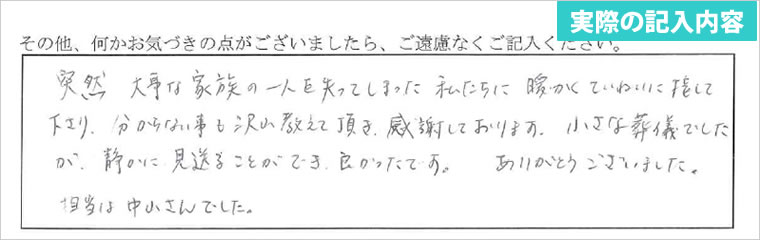 実際の記入内容
その他、何かお気づきの点がございましたら、ご遠慮なくご記入ください。
突然 大事な家族の一人を失ってしまった 私たちに 暖かくていねいに接して
下さり、分からない事も沢山教えて頂き、感謝しております。小さな葬儀でした
が、静かに見送ることができ、良かったです。 ありがとうございました。
担当は中山さんでした。